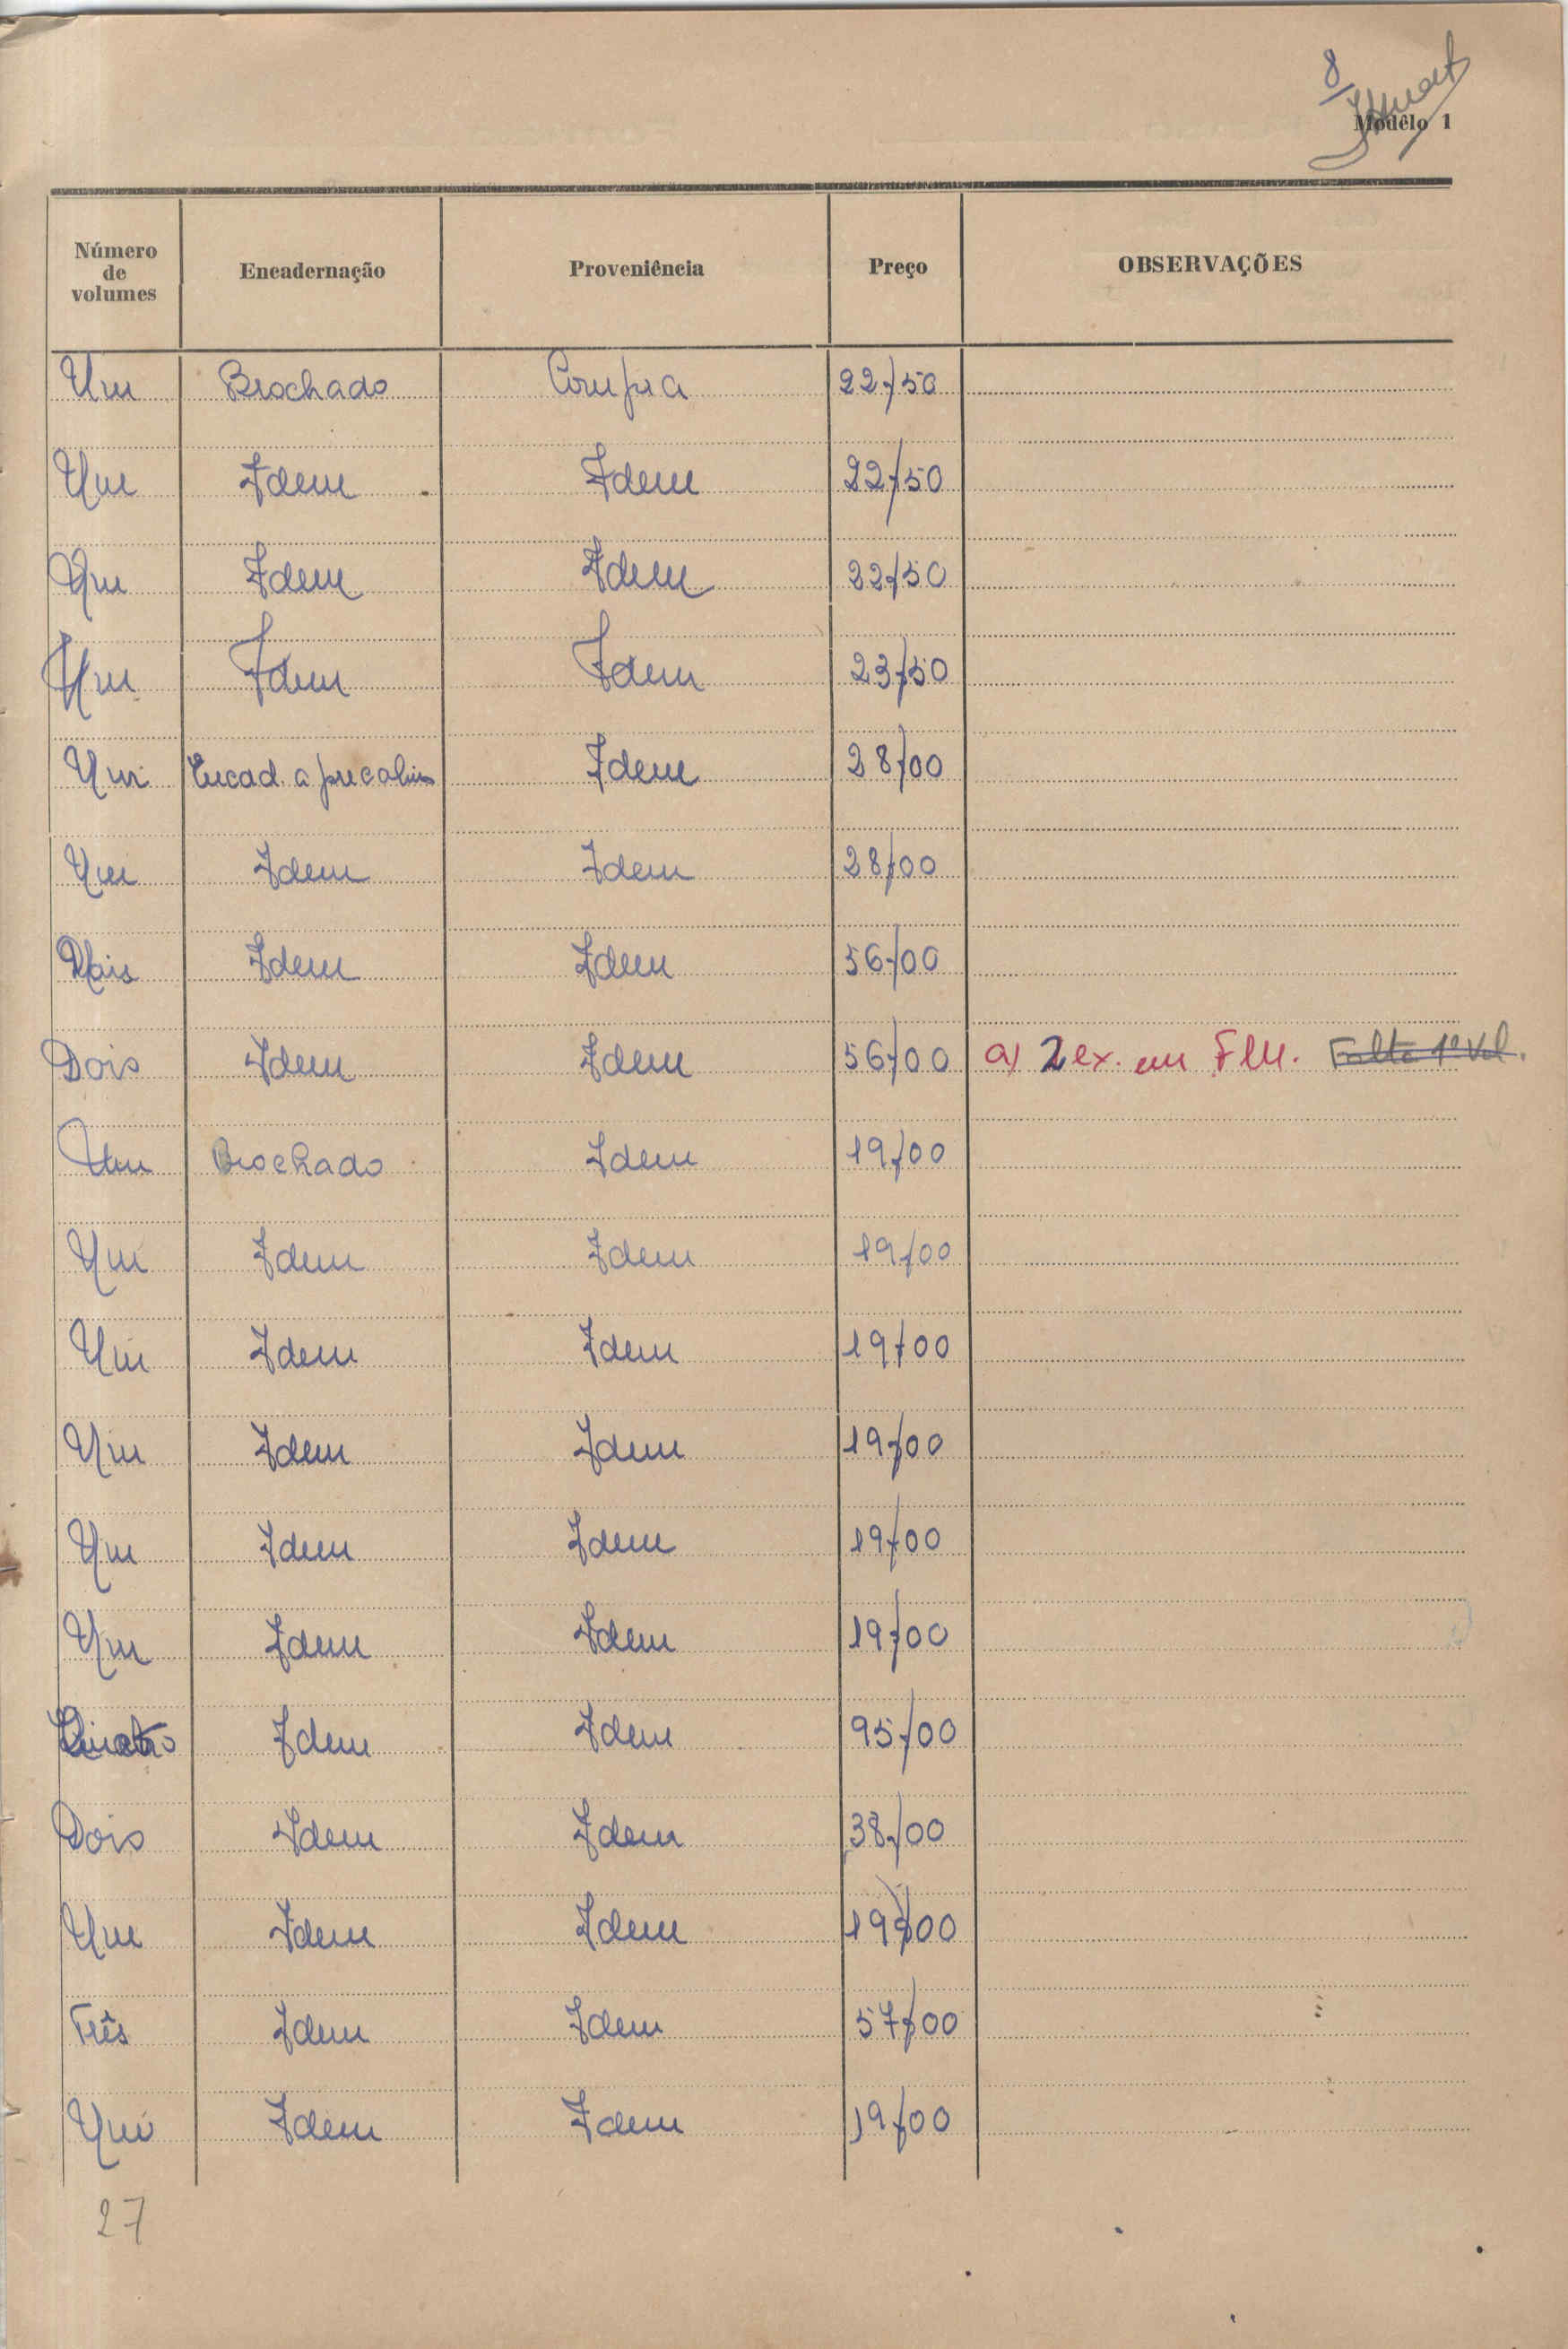 8
Modêlo 1
Número de volumes Encadernação Proveniência Preço OBSERVAÇÕES
Um Brochado Compra 22$50
Um Idem Idem 22$50
Um Idem Idem 22$50
Um Idem Idem 23$50
Um Encad. a Idem 28$00
Um Idem Idem 28$00
Dois Idem Idem 56$00
Dois Idem Idem 56$00 a) 2 ex. em F.M. Falta 1º Vol.
Um Brochado Idem 19$00
Um Idem Idem 19$00
Um Idem Idem 19$00
Um Idem Idem 19$00
Um Idem Idem 19$00
Um Idem Idem 19$00
Idem Idem 95$00
Dois Idem Idem 38$00
Um Idem Idem 19$00
Três Idem Idem 57$00
Um Idem Idem 19$00
27